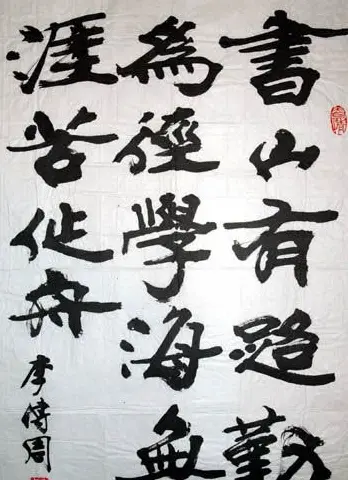 書山有路勤
為徑學海無
涯苦作舟
李
周